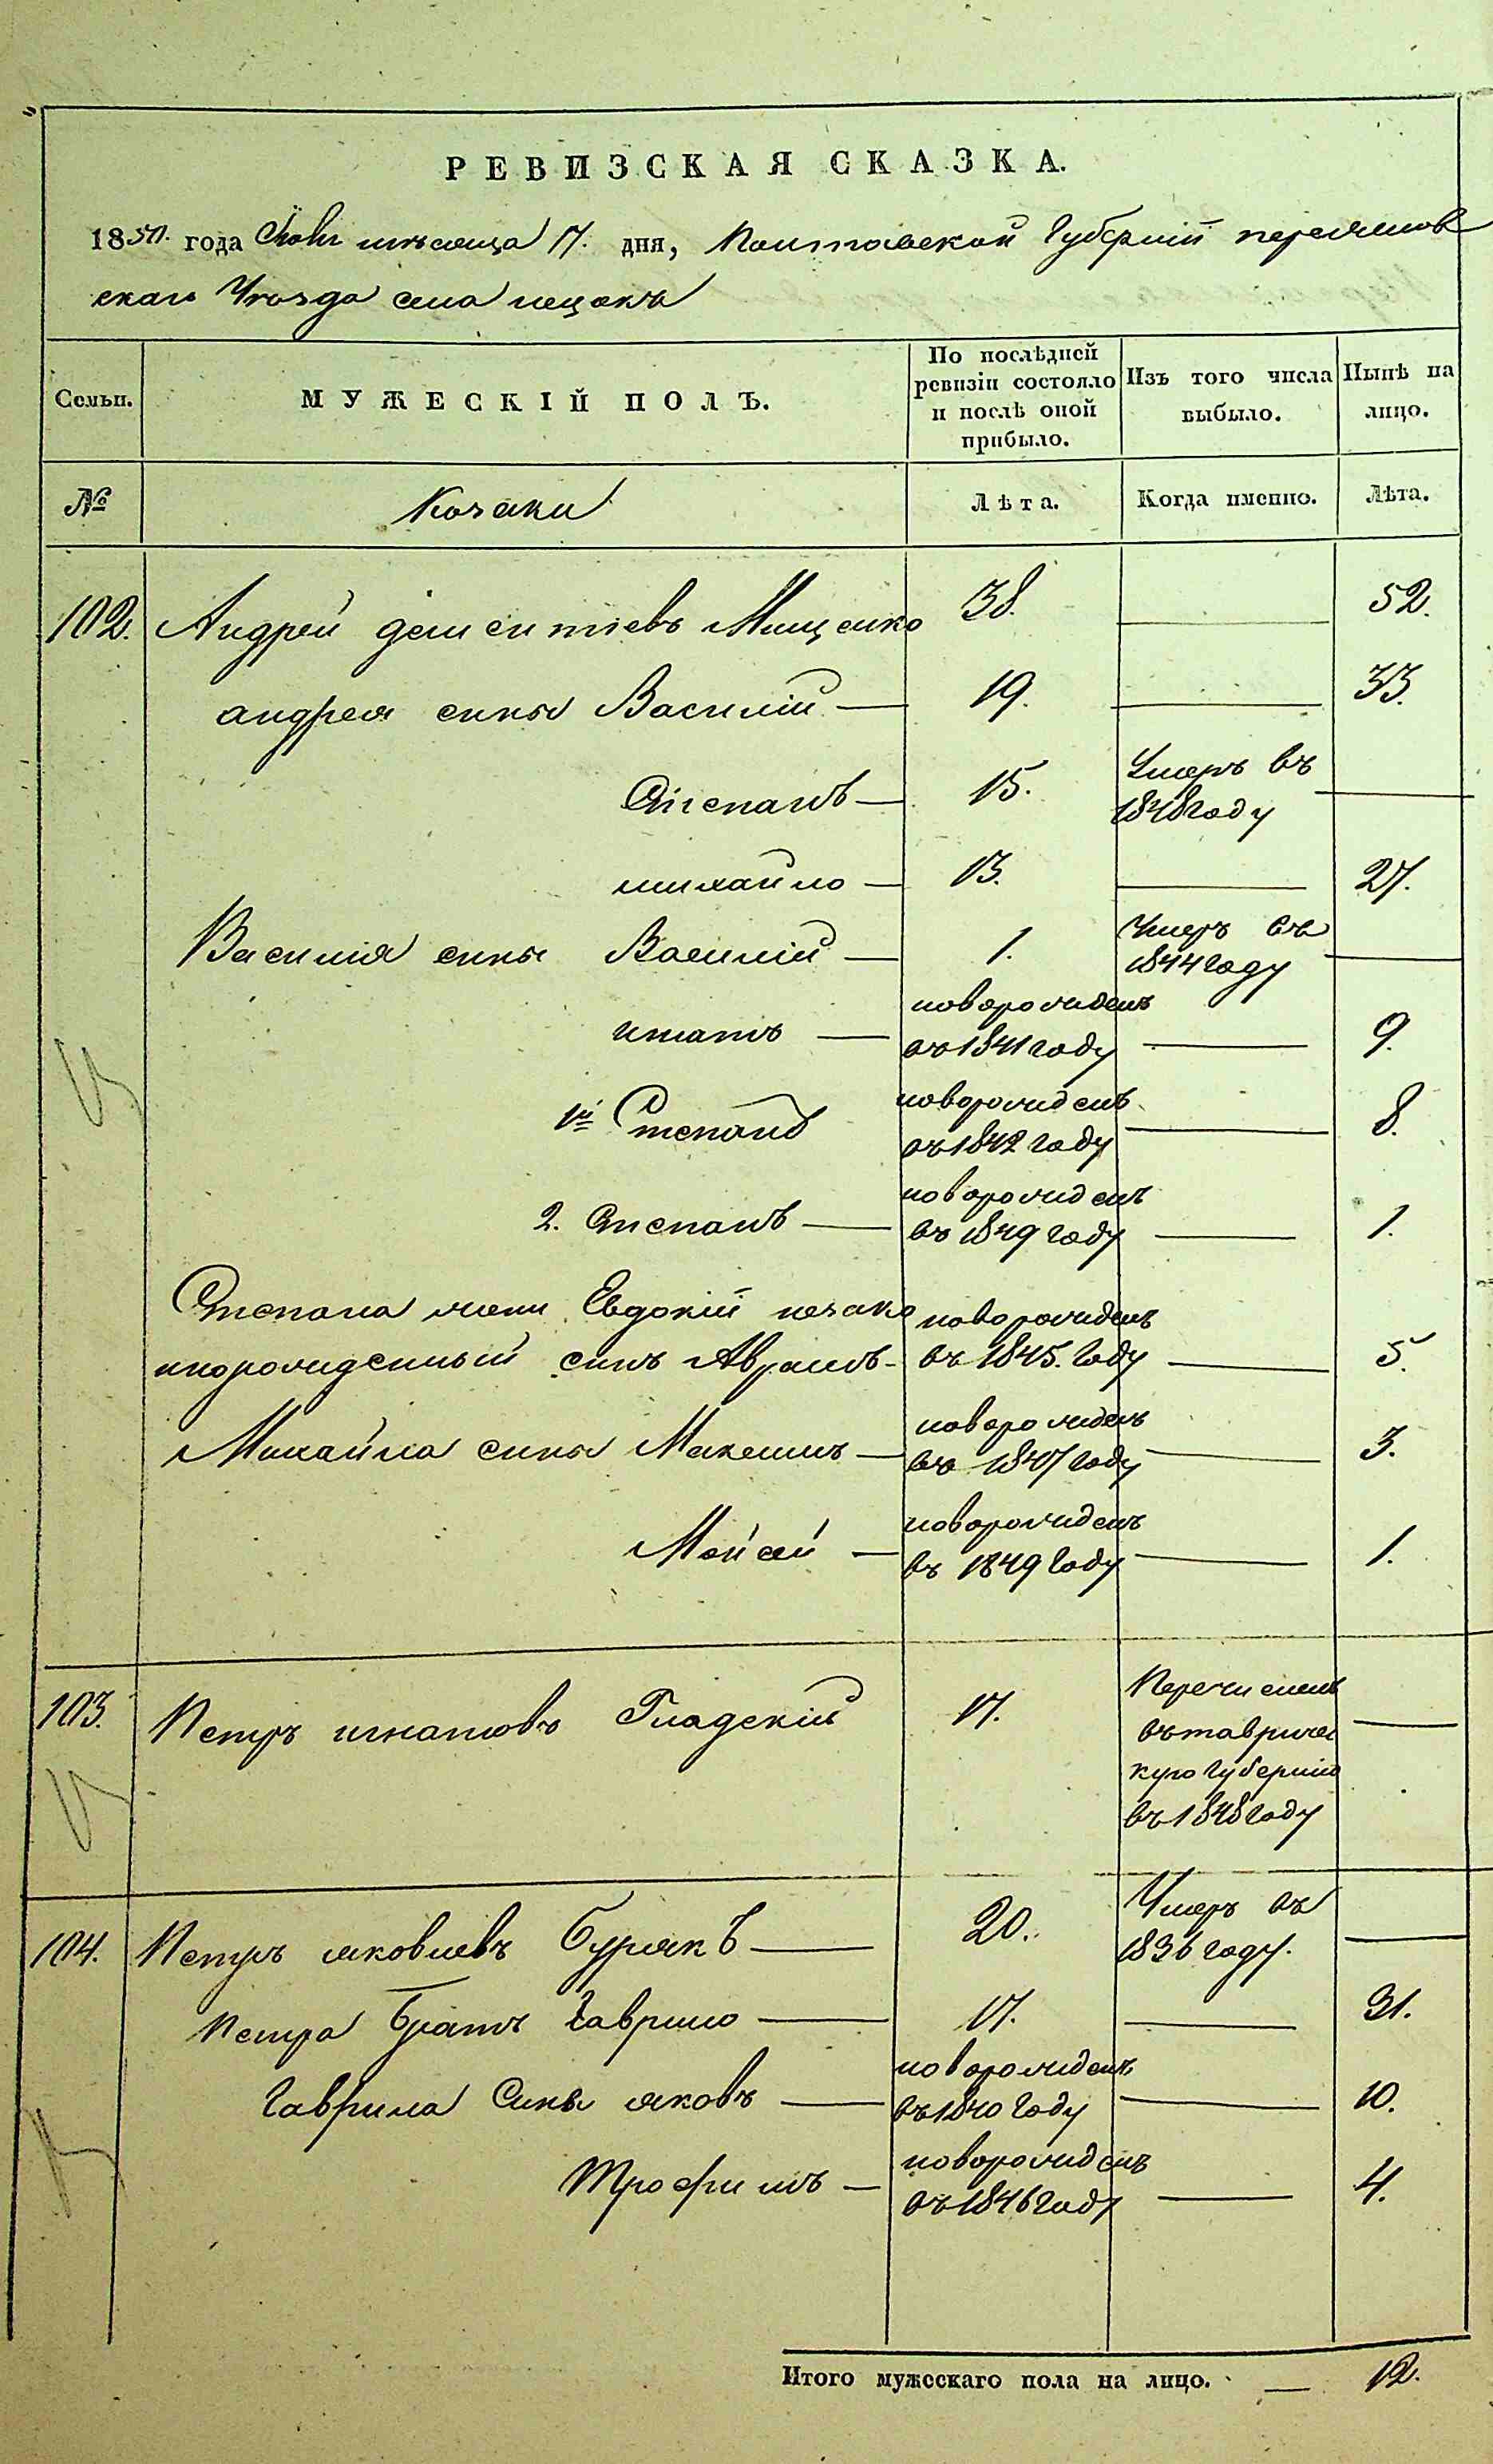 РЕВИЗСКАЯ СКАЗКА.
1850. года Июня мѣсяца 17. дня, Полтавской Губерніи переяслов
скаго Уѣзда села
Семьи.
МУЖЕСКІЙ ПОЛЪ.
По послѣдней ревизіи состояло и послѣ оной прибыло.
Изъ того числа выбыло.
Нынѣ на лицо.
№
Козаки
Лѣта.
Когда именно.
Лѣта.
102. Андрей Дементіевъ Мищенко 38. 52.
андрея сины Василій 19. 33.
Степанъ 15. Умеръ въ 1848 году
михайло 13. 27.
Василія сины Василій 1. Умеръ въ 1844 году
игнатъ новорожденъ въ 1841 году 9.
1й Степанъ новорожденъ въ 1842 году 8.
2. Степанъ новорожденъ въ 1849 году 1.
Степана жени Евдокіи незако новорожденъ
норожденный синъ Авраамъ въ 1845. году 5.
Михайла сины Максимъ новорожденъ въ 1847 году 3.
Мойсей новорожденъ въ 1849 году 1.
103. Петръ игнатовъ Гладскій 17. Перечисленъ
въ тавричес
кую губернію
въ 1848 году
104. Петръ яковлевъ Бурякъ 20. Умеръ въ 1836 году.
Петра Братъ Гаврило 17. 31.
Гаврила Сины яковъ новорожденъ въ 1840 году 10.
Трофимъ новорожденъ въ 1846 году 4.
Итого мужескаго пола на лицо. 12.